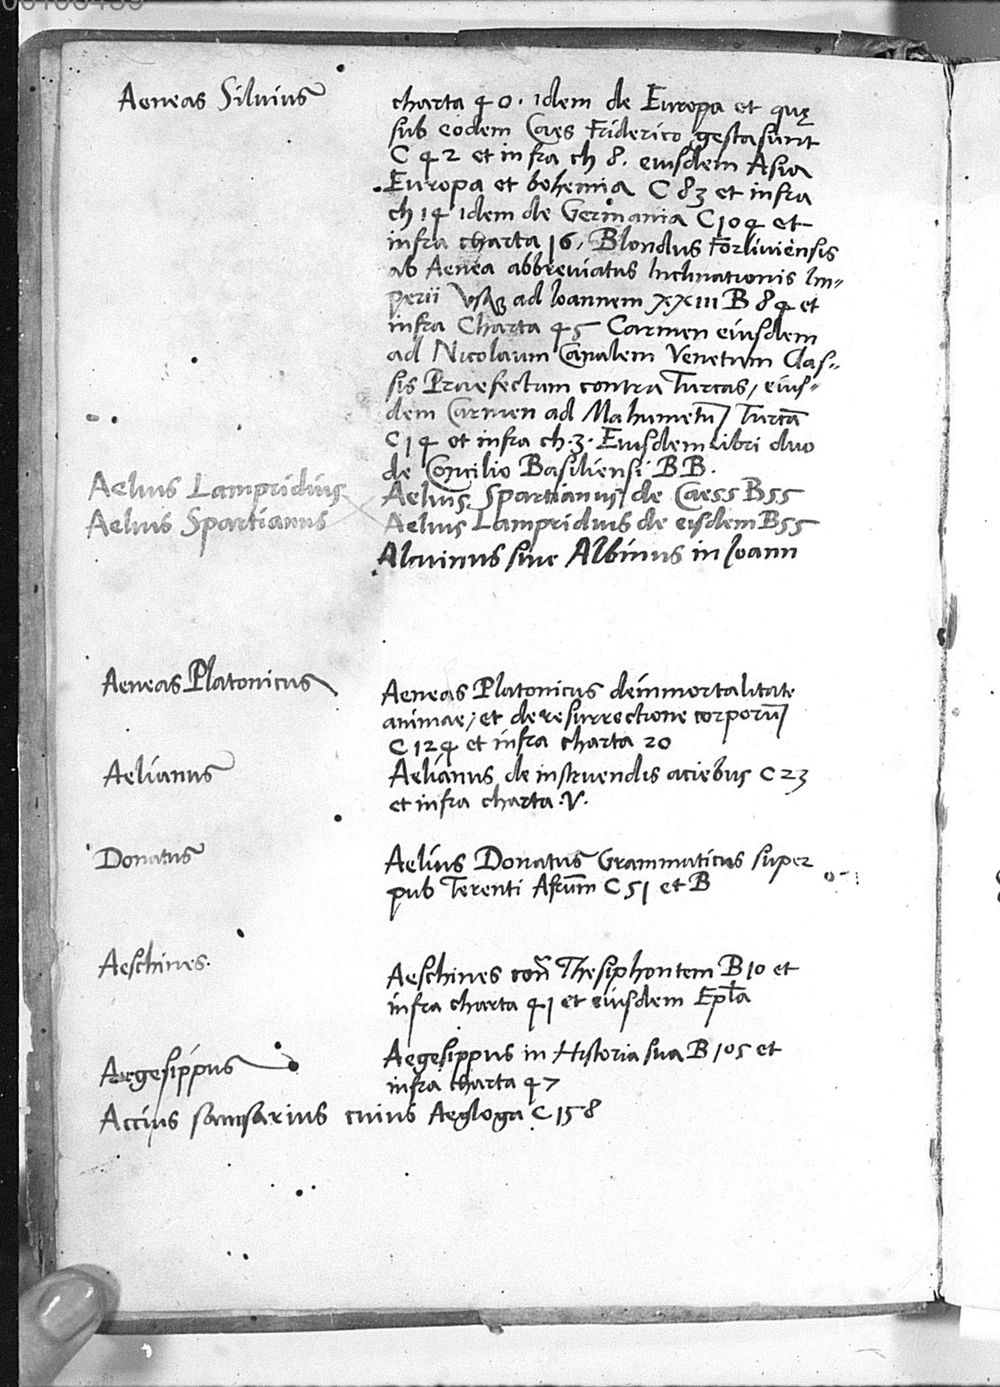 Aeneas Siluius charta 40. idem de Europa et quę
sub eodem Caes Friderico gesta sunt
C 42 et infra ch 8. eiusdem Asia
Europa et bohemia C 83 et infra
ch 14 idem de Germania C 104 et
infra charta 16, Blondus Forliuiensis
ab Aenea abbreuiatus Inclinationis Im-
perii usq; ad Ioannem XXIII B 84 et
infra Charta 45 Carmen eiusdem
ad Nicolaum Canalem Venetum Clas-
sis Praefectum contra Turcas, eius-
dem Carmen ad Mahumetū Turcā
C 14 et infra ch. 3. Eiusdem libri duo
de Concilio Basiliensi BB.
Aelius Lampridius Aelius Spartianus de Caess B55
Aelius Spartianus Aelius Lampridius de eisdem B55
Alcuinus siue Albinus in Ioann
Aeneas Platonicus Aeneas Platonicus de immortalitate
animae, et de resurrectione corporū
C 124 et infra charta 20
Aelianus Aelianus de instruendis aciebus C 23
et infra charta .V.
Donatus Aelius Donatus Grammaticus super
pub Terenti Afrum C 51 et B
Aeschines. Aeschines con̄ Thesiphontem B 10 et
infra charta 41 et eiusdem Epl̄a
Aegesippus Aegesippus in Historia sua B 105 et
infra charta 47
Accius sansarius cuius Aegloga C 158